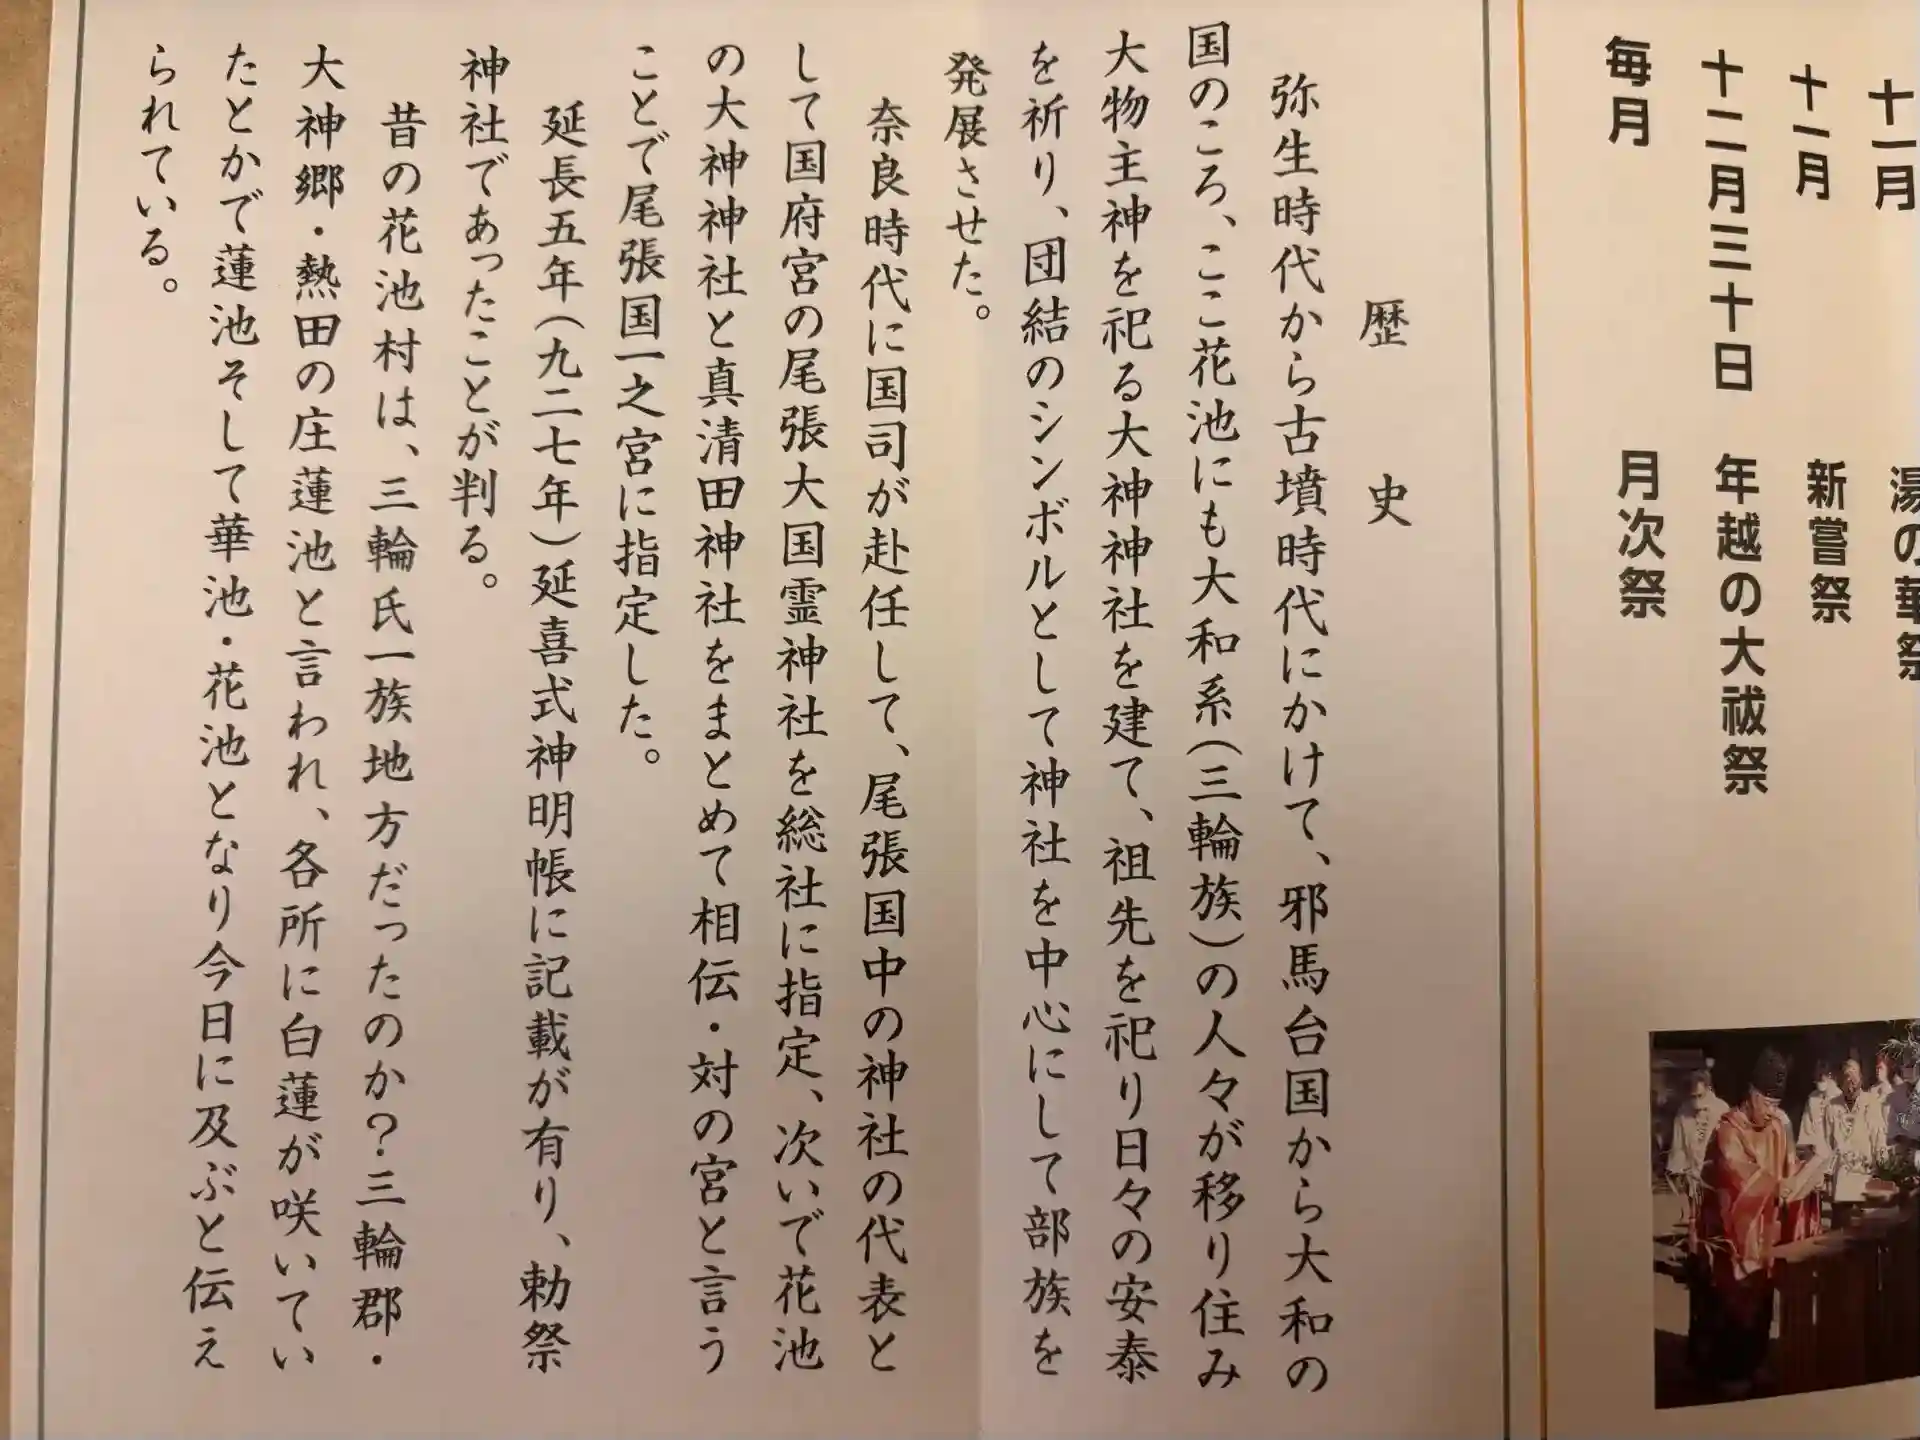 十一月
湯の華祭
十一月
新嘗祭
十二月三十日
年越の大祓祭
毎月
月次祭
歴史
弥生時代から古墳時代にかけて、邪馬台国から大和の
国のころ、ここ花池にも大和系(三輪族)の人々が移り住み
大物主神を祀る大神神社を建て、祖先を祀り日々の安泰
を祈り、団結のシンボルとして神社を中心にして部族を
発展させた。
奈良時代に国司が赴任して、尾張国中の神社の代表と
して国府宮の尾張大国霊神社を総社に指定、次いで花池
の大神神社と真清田神社をまとめて相伝・対の宮と言う
ことで尾張国一之宮に指定した。
延長五年(九二七年)延喜式神明帳に記載が有り、勅祭
神社であったことが判る。
昔の花池村は、三輪氏一族地方だったのか?三輪郡・
大神郷・熱田の庄蓮池と言われ、各所に白蓮が咲いてい
たとかで蓮池そして華池・花池となり今日に及ぶと伝え
られている。